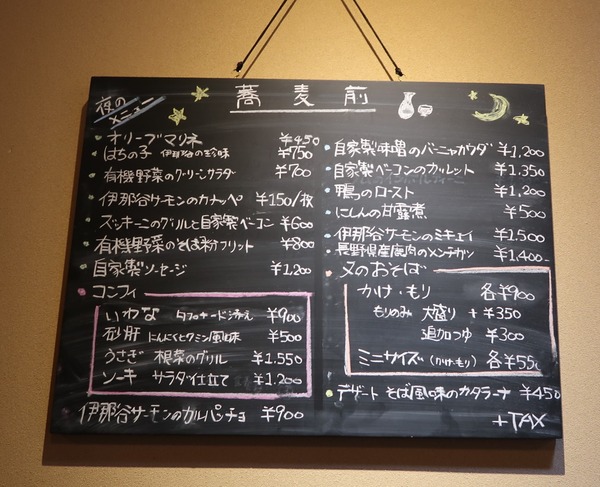 夜の
メニュー
蕎麦前
オリーブマリネ ¥450
はちの子 伊那谷の珍味 ¥750
有機野菜のグリーンサラダ ¥700
伊那谷サーモンのカナッペ ¥150/枚
ズッキーニのグリルと自家製ベーコン ¥600
有機野菜のそば粉フリット ¥800
自家製ソーセージ ¥1,200
コンフィ
いわな タプナードジャガ添え ¥900
砂肝 にんにくとクミン風味 ¥500
うさぎ 根菜のグリル ¥1,550
ソーキ サラダ仕立て ¥1,200
伊那谷サーモンのカルパッチョ ¥900
自家製味噌のバーニャカウダ ¥1,200
自家製ベーコンのカツレット ¥1,350
鴨のロースト ¥1,200
にしんの甘露煮 ¥500
伊那谷サーモンのミキュイ ¥1,500
長野県産鹿肉のメンチカツ ¥1,400-
〆のおそば
かけ・もり 各¥900
もりのみ 大盛り +¥350
追加つゆ ¥300
ミニサイズ(かけ・もり) 各¥550
デザート そば風味のカタラーナ ¥450
+TAX